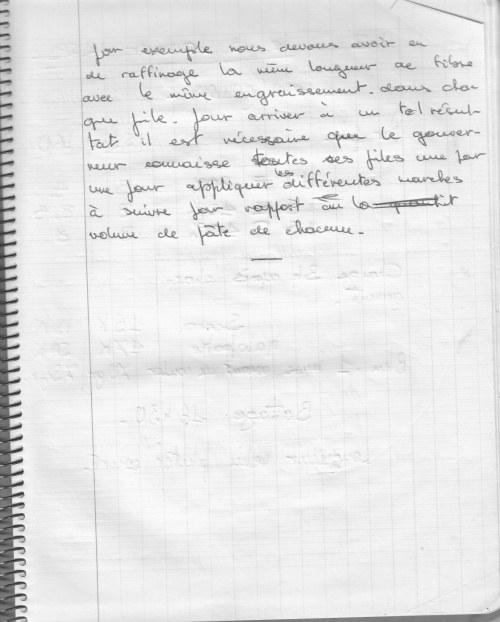 par exemple nous devons avoir en
de raffinage la même longueur de fibre
avec le même engraissement. dans cha
que pile. Pour arriver à un tel résul-
tat il est nécessaire que le gouver-
neur connaisse toutes ses piles une par
une pour appliquer les différentes marches
à suivre par rapport au
volume de pâte de chacune.